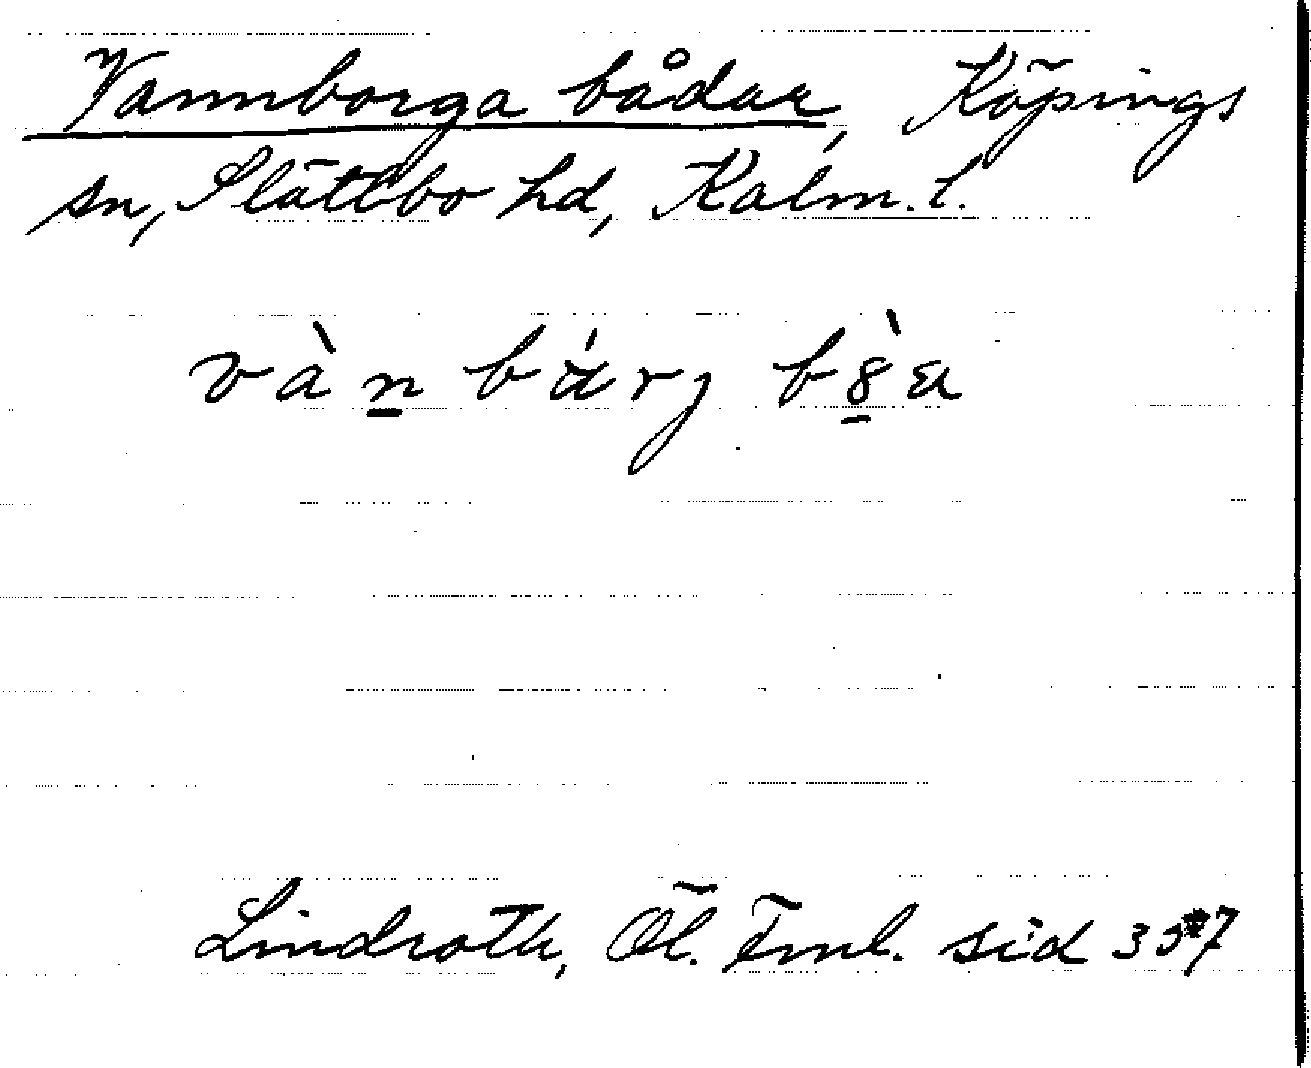 Vannborga bådar, Köpings
sn, Slättbo hd, Kalm. l.
vàn bárj b8̀a
Lindroth, Öl. Fml. sid